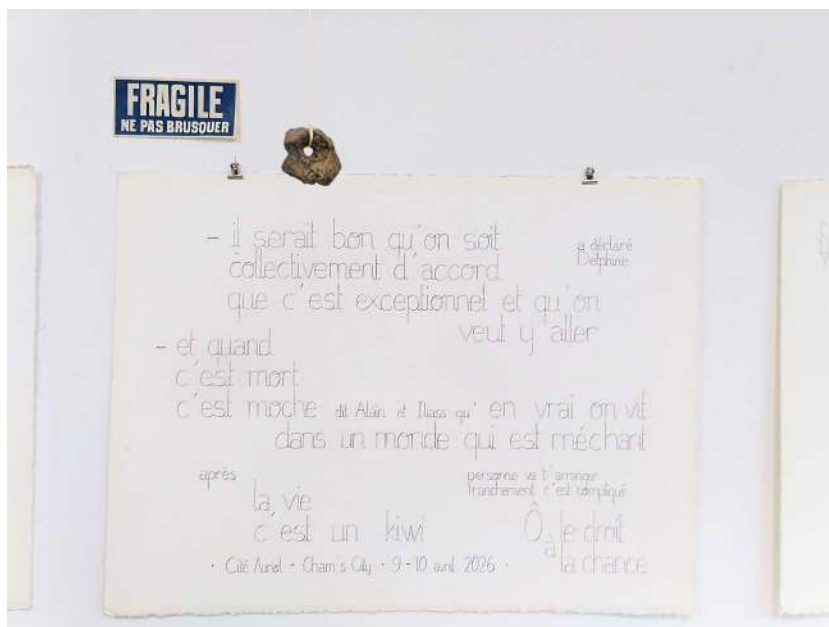 FRAGILE
NE PAS BRUSQUER
- il serait bon qu'on soit
a déclaré
Delphine
collectivement d'accord
que c'est exceptionnel et qu'on
veut y aller
- et quand
c'est mort
c'est moche dit Alain et Iliass qu' en vrai on vit
dans un monde qui est méchant
après
la vie
c'est un kiwi
personne va t'arranger
franchement c'est compliqué
Ô le droit
à la chance
· Cité Auriol · Cham's City · 9 - 10 avril 2026 ·